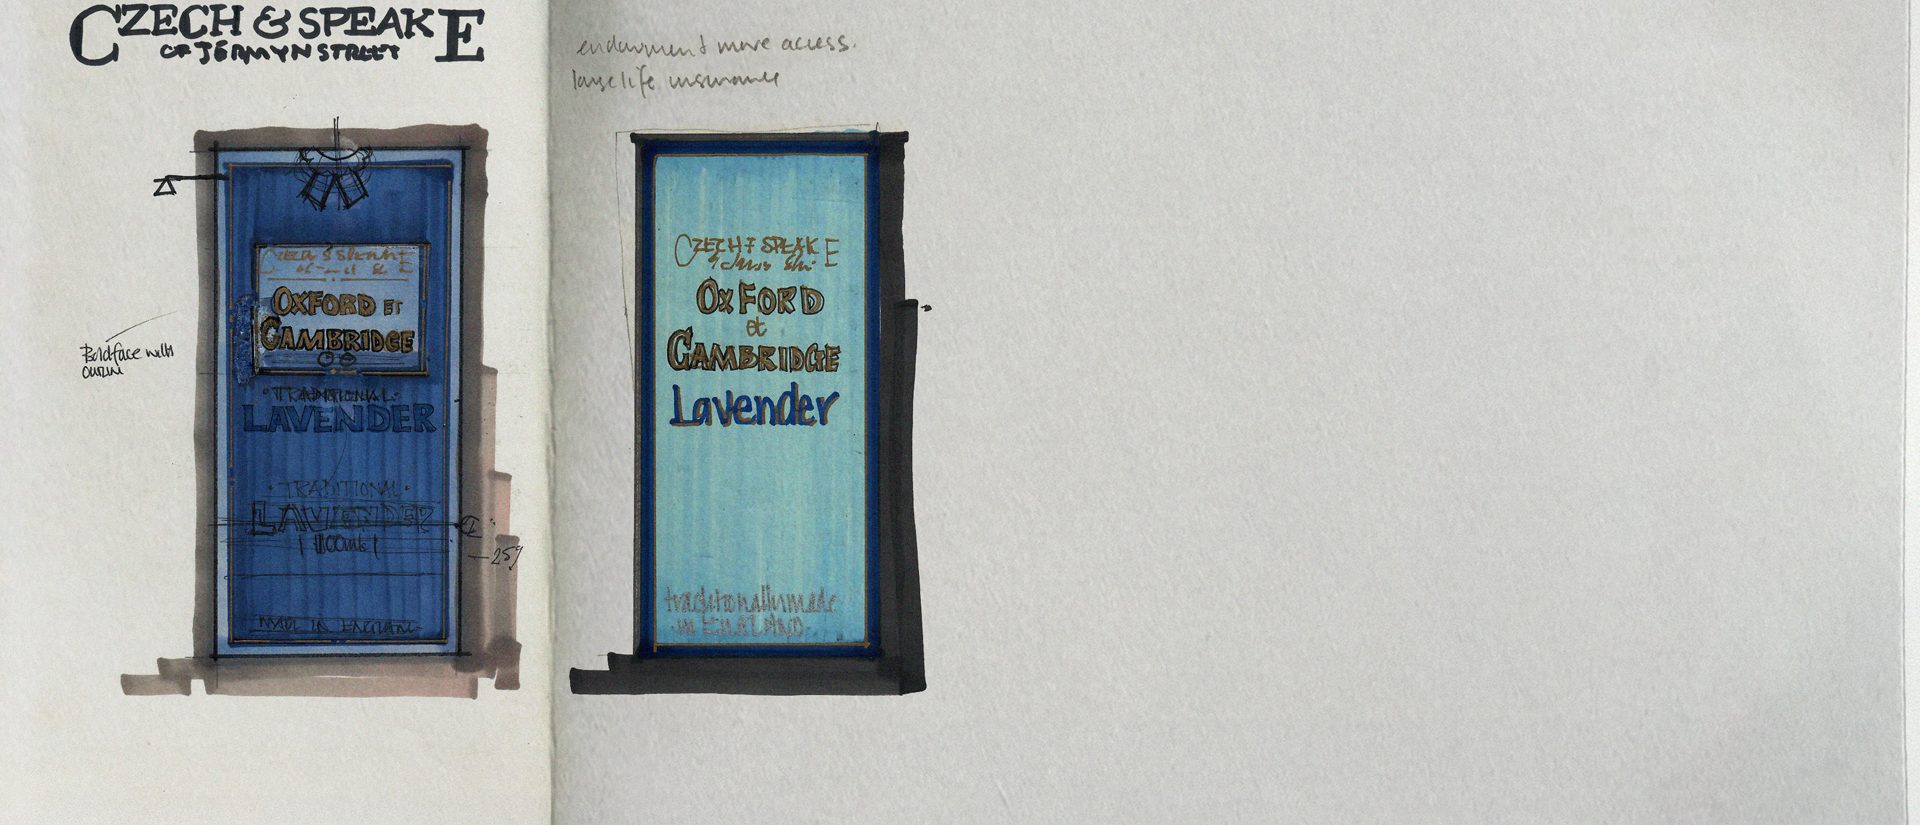 CZECH & SPEAKE
OF JERMYN STREET
endowment more access.
large life insurance
CZECH & SPEAKE
OXFORD ET
CAMBRIDGE
Boldface with
outline
·TRADITIONAL·
LAVENDER
·TRADITIONAL·
LAVENDER
100mls
MADE IN ENGLAND
CZECH & SPEAKE
OXFORD
et
CAMBRIDGE
Lavender
traditionally made
in ENGLAND.